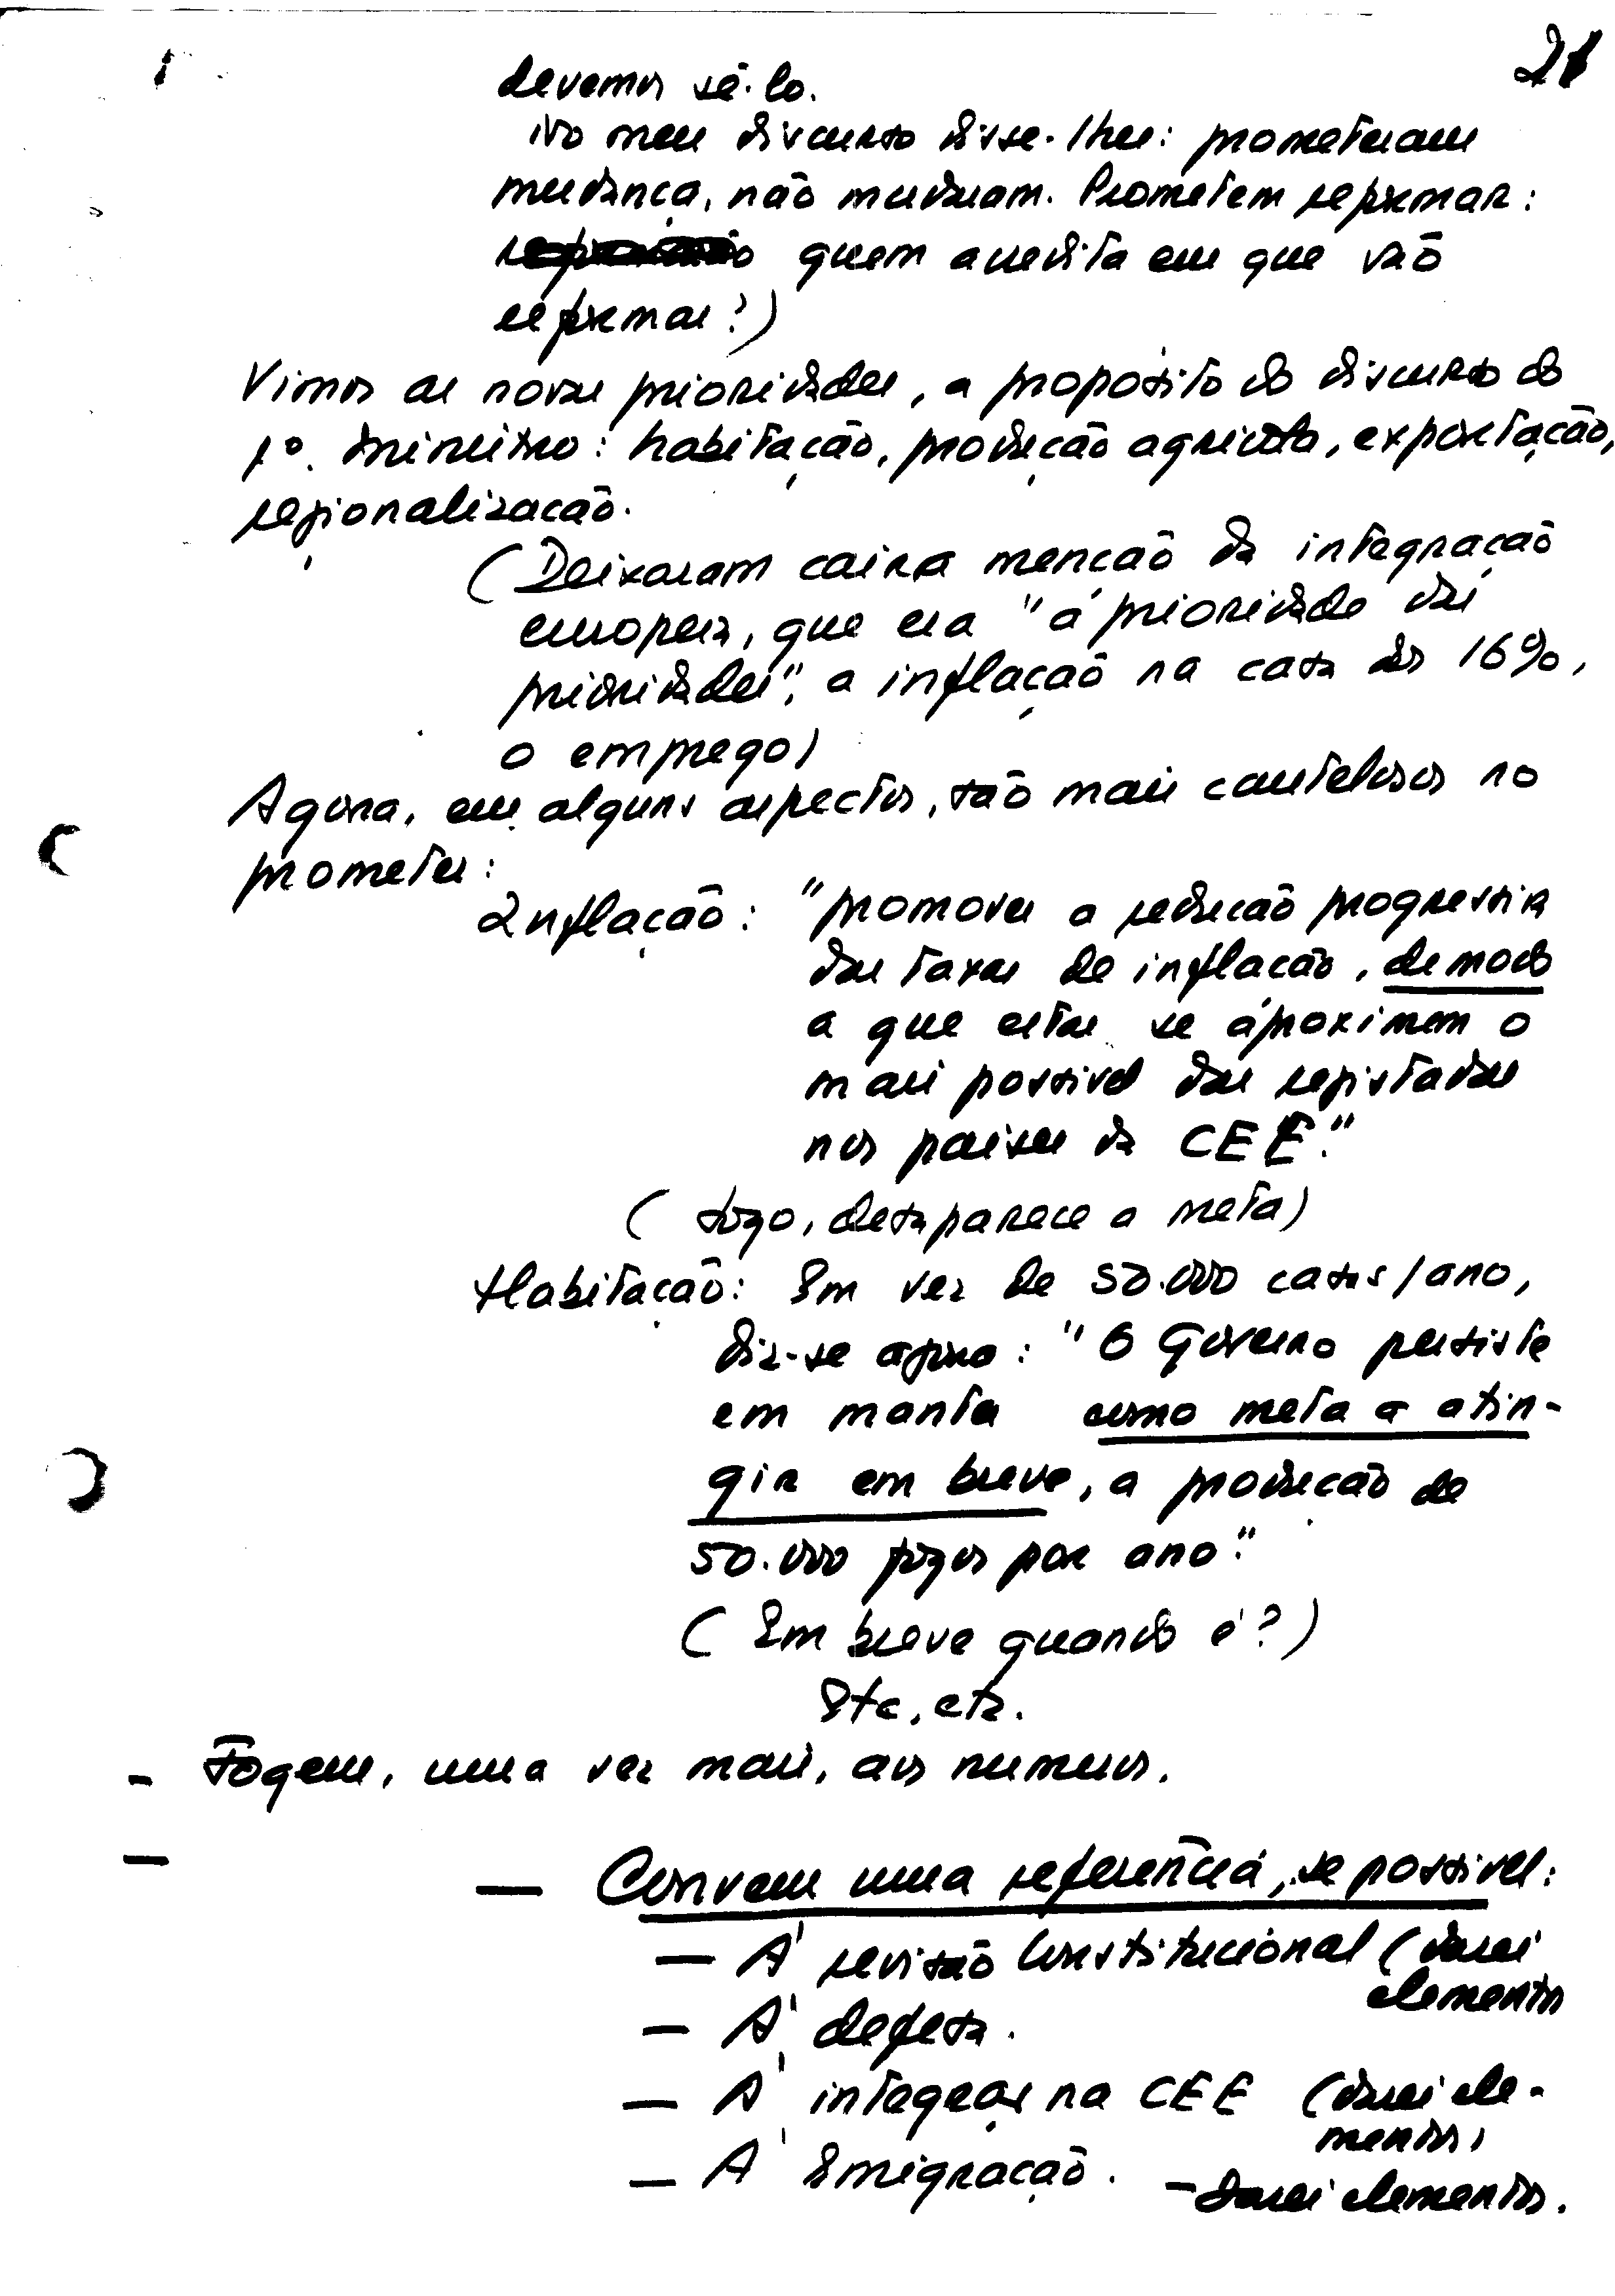 21
devemos sê-lo.
No meu discurso disse-lhes: prometeram
mudança, não mudaram. Prometem reformar:
quem acredita em que vão
reformar?)
Vimos as novas prioridades, a propósito do discurso do
1º. Ministro: habitação, produção agrícola, exportação,
regionalização.
(Deixaram cair a menção da integração
europeia, que era "a prioridade das
prioridades", a inflação na casa dos 16%,
o emprego)
Agora, em alguns aspectos, são mais cautelosos no
prometer:
Inflação: "promover a redução progressiva
das taxas de inflação, de modo
a que estas se aproximem o
mais possivel das registadas
nos países da CEE."
(Logo, desaparece a meta)
Habitação: Em vez de 50.000 casas/ano,
diz-se agora: "O Governo persiste
em manter como meta a atin-
gir em breve, a produção de
50.000 fogos por ano."
(Em breve quando é?)
Etc, etc.
- Fogem, uma vez mais, aos numeros.
-
- Convem uma referência, se possivel:
- À revisão Constitucional (darei
elementos
- À defesa.
- À integraç na CEE (darei ele-
mentos)
- À Emigração. - Darei elementos.